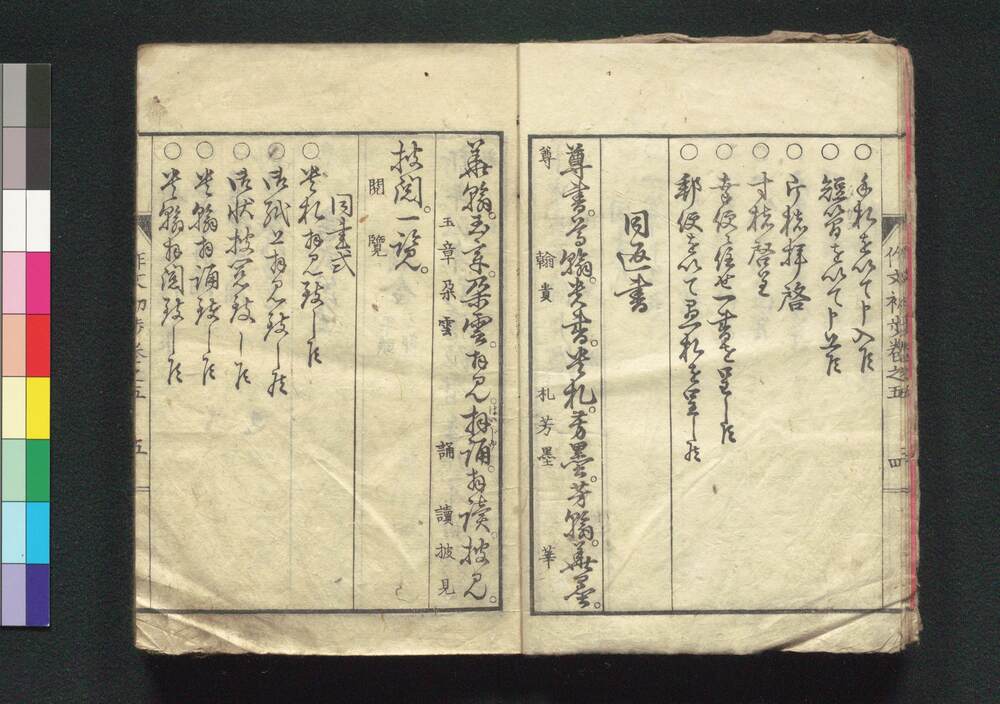 作文初歩巻之五 四
○手札を以て申入候
○短簡を以て申上候
○片楮拝啓
○寸楮啓上
○幸便に任せ一書を呈し候
○郵便を以て愚札を呈し候
同返書
尊書。尊翰。貴書。貴札。芳墨。芳翰。華墨。
尊 翰 貴 札 芳 墨 華
華翰。玉章。朶雲。拝見。拝誦。拝讀。披見。
玉 章 朶 雲 誦 讀 披 見
披閲。一覧。
閲 覽
同書式
○貴札拝見致し候
○御紙上拝見致し候
○御状披見致し候
○貴翰拝誦致し候
○貴翰拝閲致し候
作文初歩巻之五 五